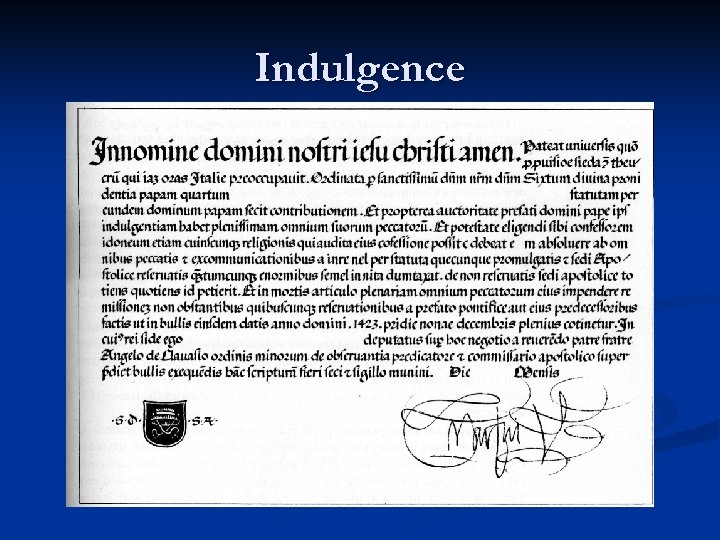 Indulgence
Innomine domini nostri iesu christi amen. Pateat uniuersis quõ
crũ qui iaȝ oras Italie preoccupauit. Ordinata ꝑ sanctissimũ dñm nrm dñm Sixtum diuina proni
dentia papam quartum statutam per
eundem dominum papam fecit contributionem. Et propterea auctoritate prefati domini pape ipſ
indulgentiam habet plenissimam omnium suorum peccatorũ. Et potestate eligendi sibi confessorem
idoneum etiam cuiuscunqȝ religionis qui audita eius cõfessione possit ⁊ debeat e m absoluere ab om
nibus peccatis ⁊ excommunicationibus a iure uel per statuta quecunque promulgatis ⁊ sedi Apo
stolice reseruatis enormibus semel in uita dumtaxat. de non reseruatis sedi apostolice to
tiens quotiens id petierit. Et in mortis articulo plenariam omnium peccatorum eius impendere re
missionẽ non obstantibus quibuscunqȝ reseruationibus a prefato pontifice aut eius predecessoribus
factis ut in bullis eiusdem datis anno domini .1423. pridie nonas decembris plenius cõtinetur. In
cuiꝰ rei fide ego deputatus suꝑ hoc negotio a reuerẽdo patre fratre
Angelo de Clauasio ordinis minorum de obseruantia predicatore ⁊ commissario apostolico super
p̃dict bullis exequẽdis hãc scripturã fieri feci ⁊ sigillo muniui. Die Mensis
·S·D· ·S·A·